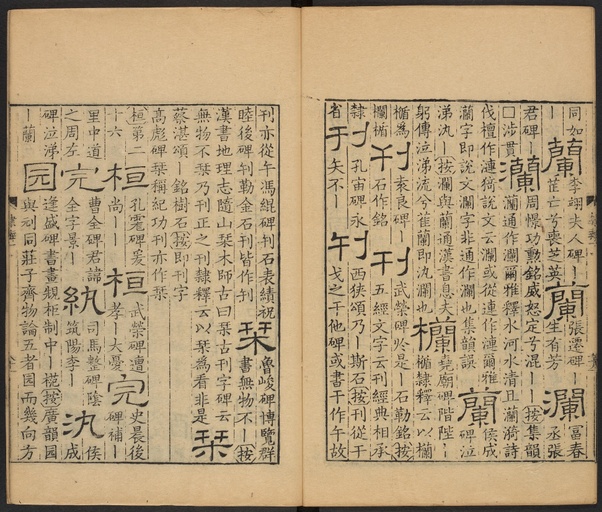 同如 李翊夫人碑｜ 張遷碑｜ 富春
｜ 蘭 芷亡兮喪芝英 蘭 生有芳 瀾 丞張
君碑｜ 瀾 周憬功勳銘威怒定兮混｜按集韻
□涉貫 瀾通作灡爾雅釋水河水清且灡漪詩
伐檀作漣猗說文云瀾或從連作漣爾雅 侯成
灡字即說文瀾字非通作灡也集韻誤 蘭 碑泣
涕汍｜按瀾與蘭通漢書息夫 欄 堯廟碑階陛｜
躬傳泣涕流兮萑蘭即汍瀾也 楯隸釋云以欄
楯為 刊 袁良碑｜ 刊 武榮碑於是｜石勒銘按
欄楯 石作銘 五經文字云刊經典相承
隸 刊 孔宙碑永 刊 西狹頌乃｜斯石按刊從干
省 于 矢不｜ 午 戈之干他碑或書干作午故
刊亦從午馮緄碑刊石表績祝 魯峻碑博覽群
睦後碑刊勒金石刊皆作刋 栞 書無物不｜按
漢書地理志隨山栞木師古曰栞古刊字碑云
無物不栞乃刊正之刊隸釋云以栞為看非是 栞
蔡湛頌｜銘樹石按即刊字
高彪碑栞稱紀功刊亦作栞
桓第二 孔霮碑爰 武榮碑遭 史晨後
十六 桓 尚｜｜ 桓 孝｜大憂 完 碑補｜
里中道 曹全碑君諱 司馬整碑陰 侯
之周左 完 全字景｜ 紈 筑陽李｜ 汍 成
碑泣涕 逢盛碑書畫規柜制中｜按廣韻园
｜蘭 园 與刓同莊子齊物論五者园而幾向方